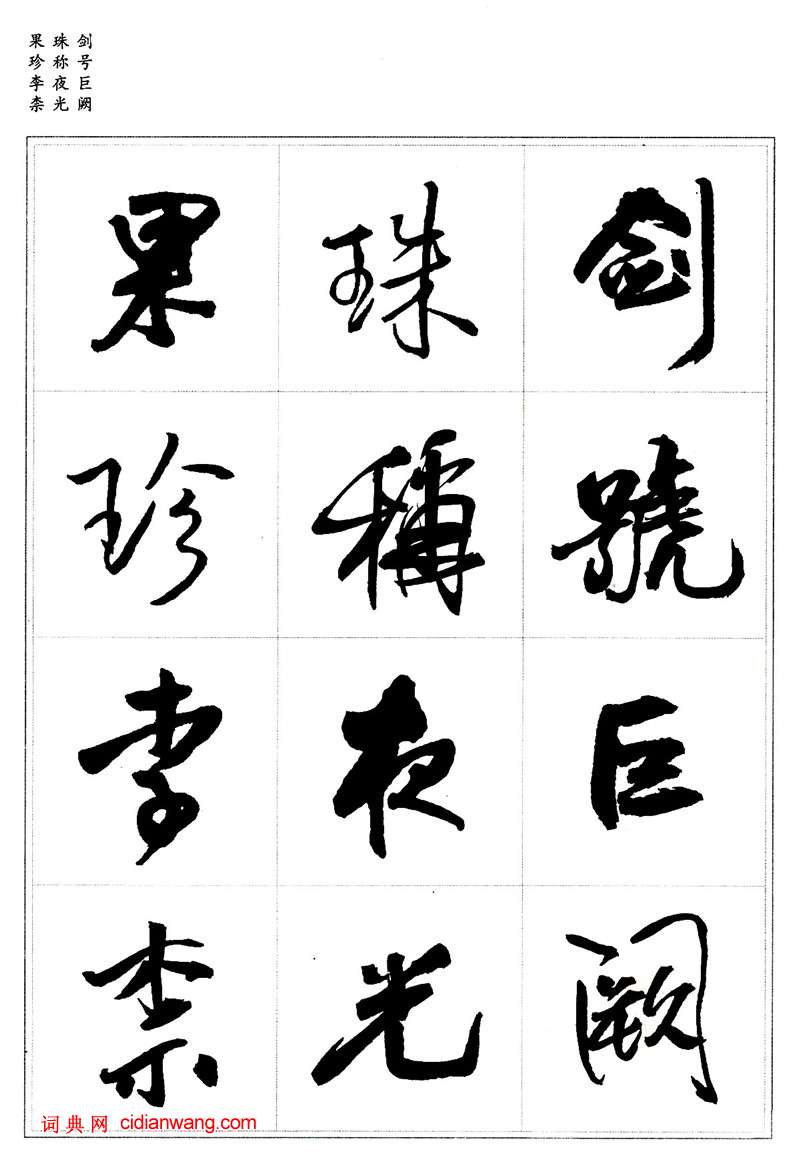 剑号巨阙
珠称夜光
果珍李柰
劍號巨闕
珠稱夜光
果珍李柰
词典网 cidianwang.com